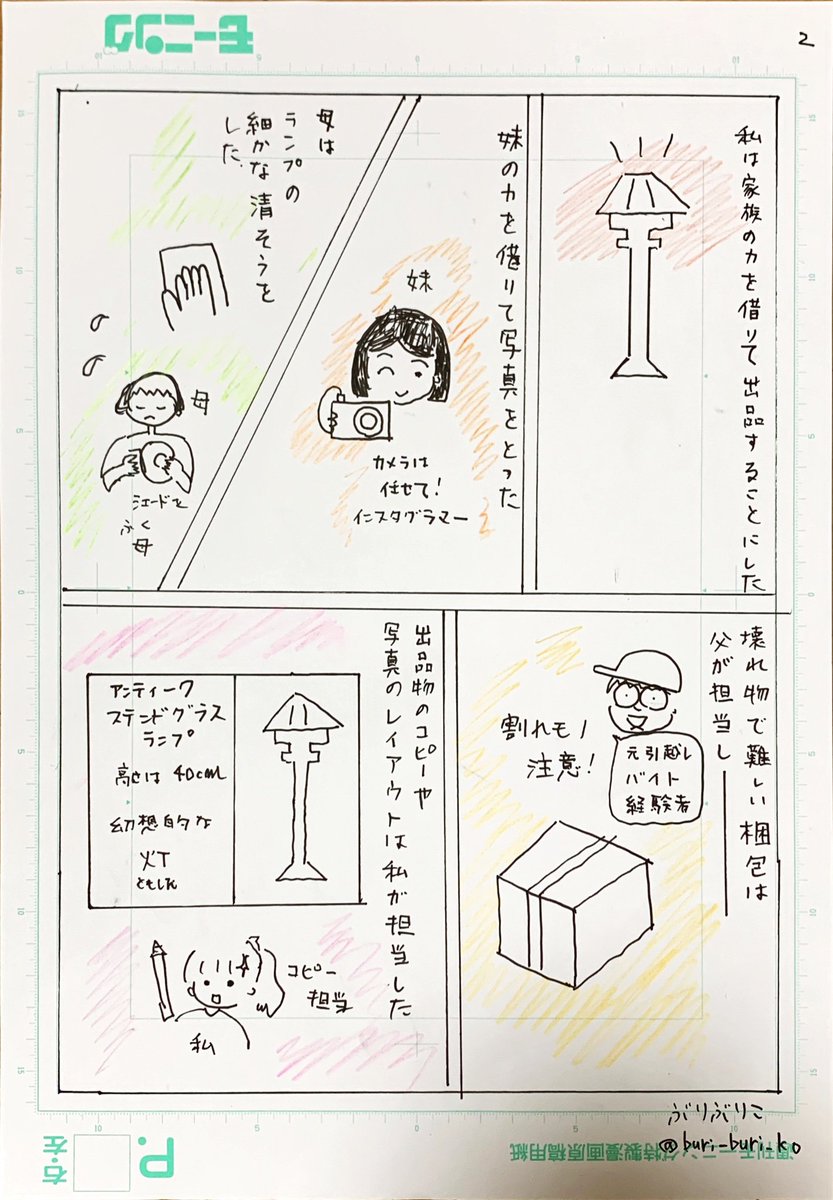 2
モーニング
私は家族の力を借りて出品することにした
妹の力を借りて写真をとった
妹
カメラは
任せて！
インスタグラマー
母は
ランプの
細かな清そうを
した。
母
シェードを
ふく
母
壊れ物で難しい梱包は
父が担当し
割れモノ
注意！
元引越し
バイト
経験者
出品物のコピーや
写真のレイアウトは私が担当した
アンティーク
ステンドグラス
ランプ
高さは40cm
幻想的な
灯
ともしれ
コピー
担当
私
ぶりぶりこ
@buri-buri.ko
週刊モーニング特製漫画原稿用紙
P.
右・左